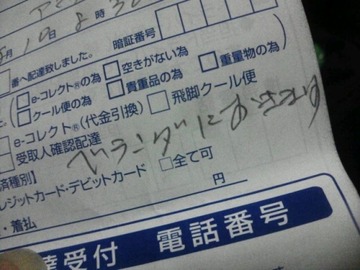 月10日 8時30
暗証番号
書へ配達致しました。
□e-コレクト®の為 □空きがない為 □重量物の為
□クール便の為 □貴重品の為
□e-コレクト®(代金引換) □飛脚クール便
□受取人確認配達
ベランダにおきます
済種別】
レジットカード・デビットカード □全て可
円
・着払
達受付 電話番号